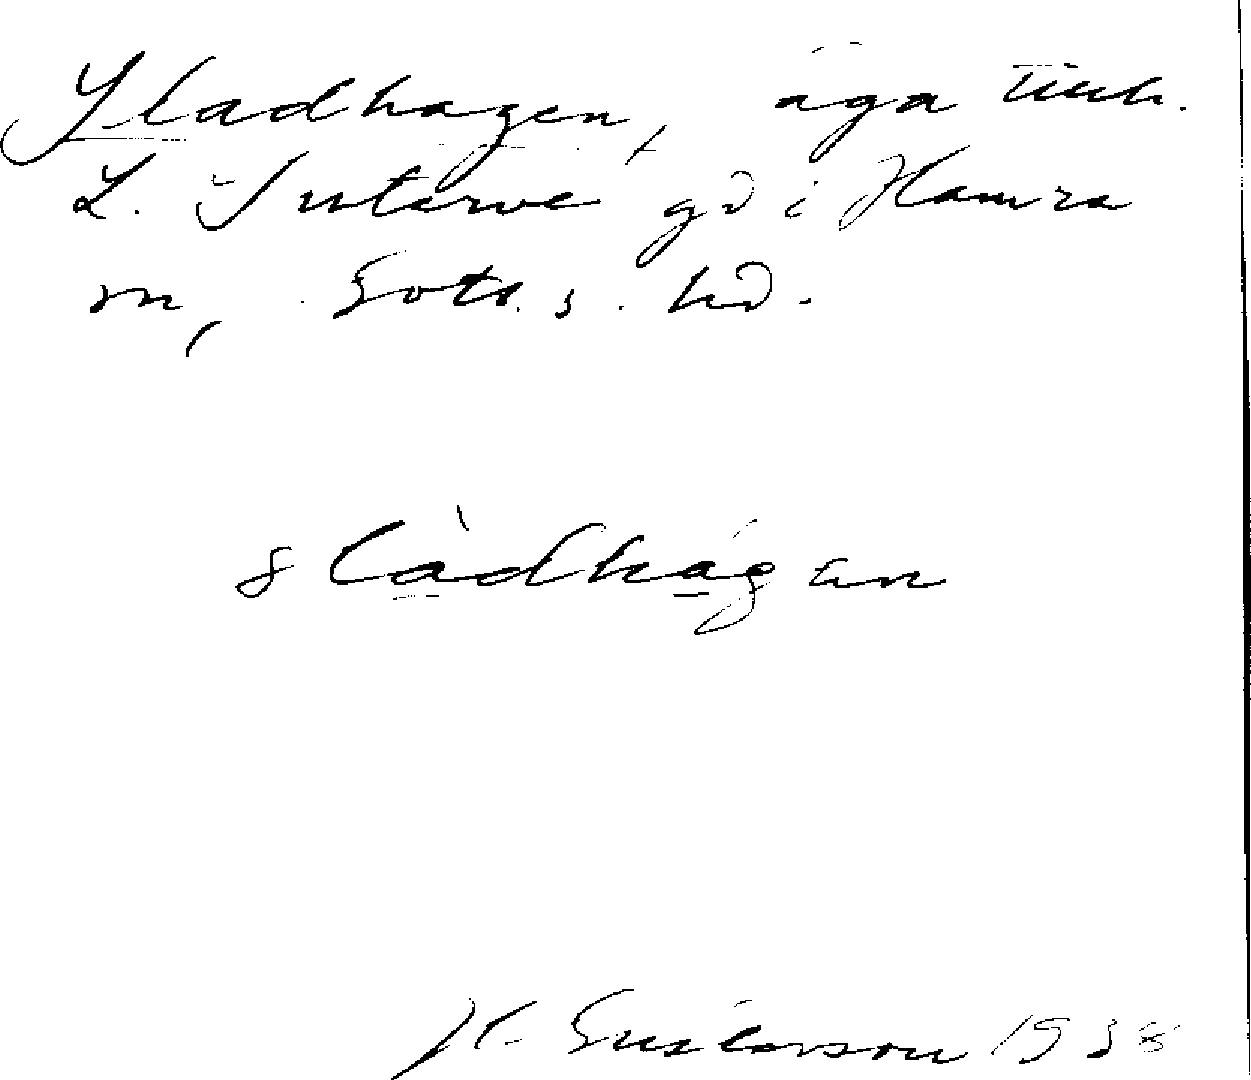 Sladhagen, äga tillh.
L. Suterve gd i Hamra
sn, Gotl. s. hd.
slàdhágan
H. Gustavson 1938